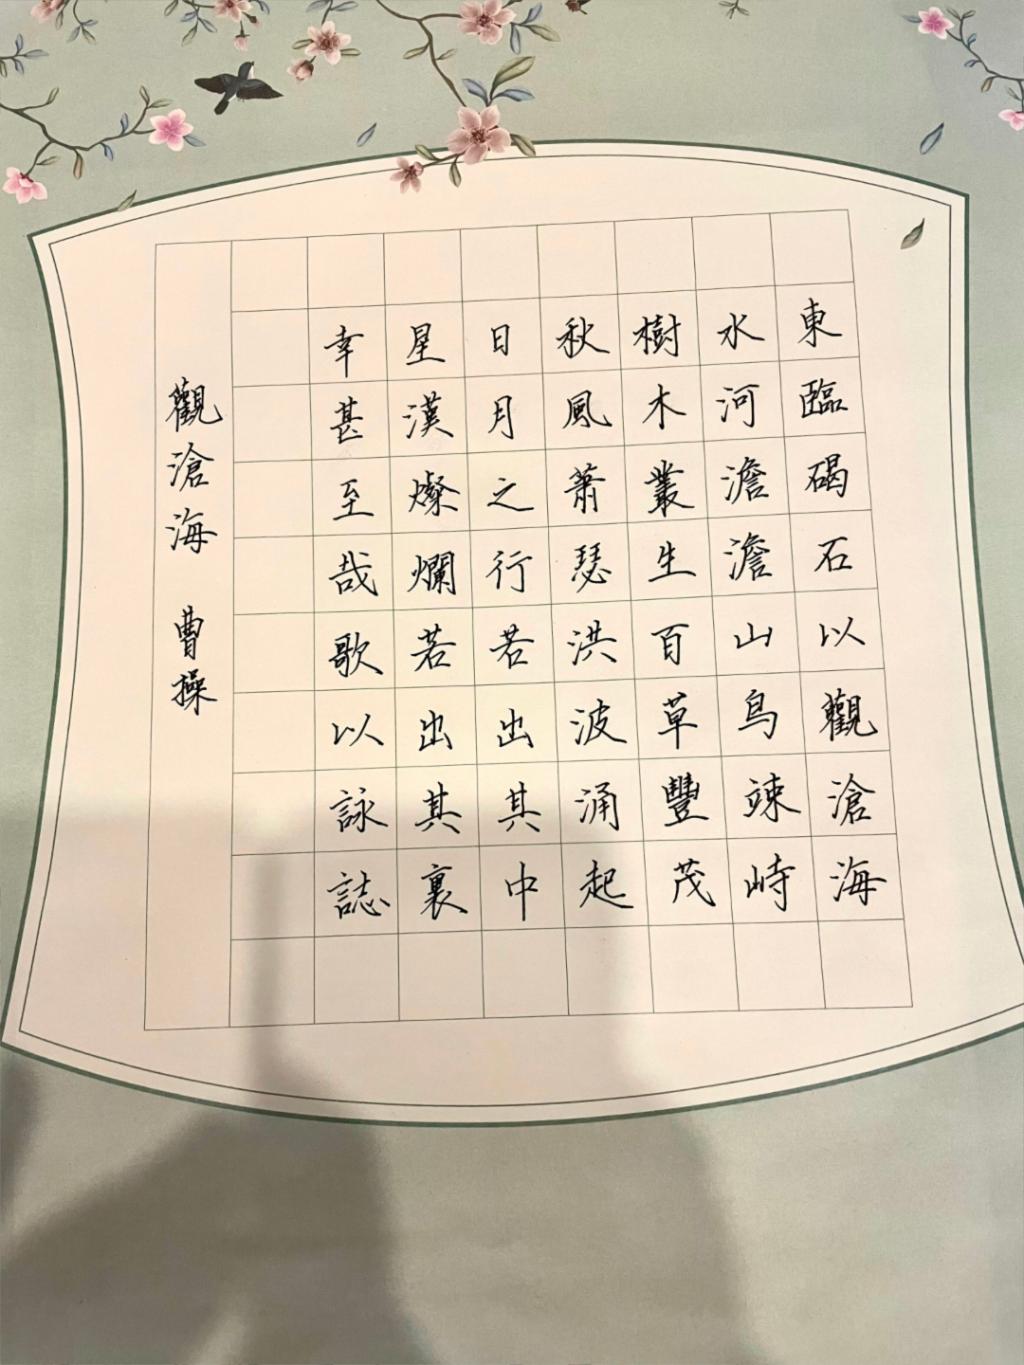 東臨碣石以觀滄海
水河澹澹山鳥竦峙
樹木叢生百草豐茂
秋風蕭瑟洪波涌起
日月之行若出其中
星漢燦爛若出其裏
幸甚至哉歌以詠誌
觀滄海 曹操